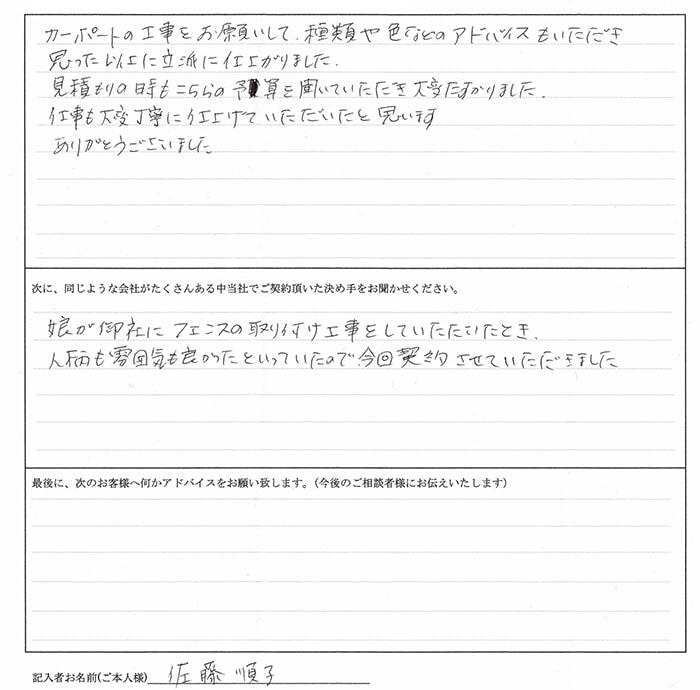 カーポートの工事をお願いして、種類や色などのアドバイスもいただき
思った以上に立派に仕上がりました。
見積もりの時もこちらの予算を聞いていただき大変たすかりました。
仕事も大変丁寧に仕上げていただいたと思います
ありがとうございました
次に、同じような会社がたくさんある中当社でご契約頂いた決め手をお聞かせください。
娘が御社にフェンスの取り付け工事をしていただいたとき、
人柄も雰囲気も良かったといっていたので今回契約させていただきました
最後に、次のお客様へ何かアドバイスをお願い致します。（今後のご相談者様にお伝えいたします）
記入者お名前(ご本人様) 佐藤 順子